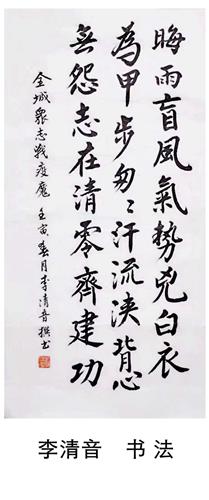 晦雨盲風氣勢兇白衣
為甲步匆〻汗流浹背心
無怨志在清零齊建功
全城眾志戰疫魔 壬寅春月李清音撰书
李清音 书法